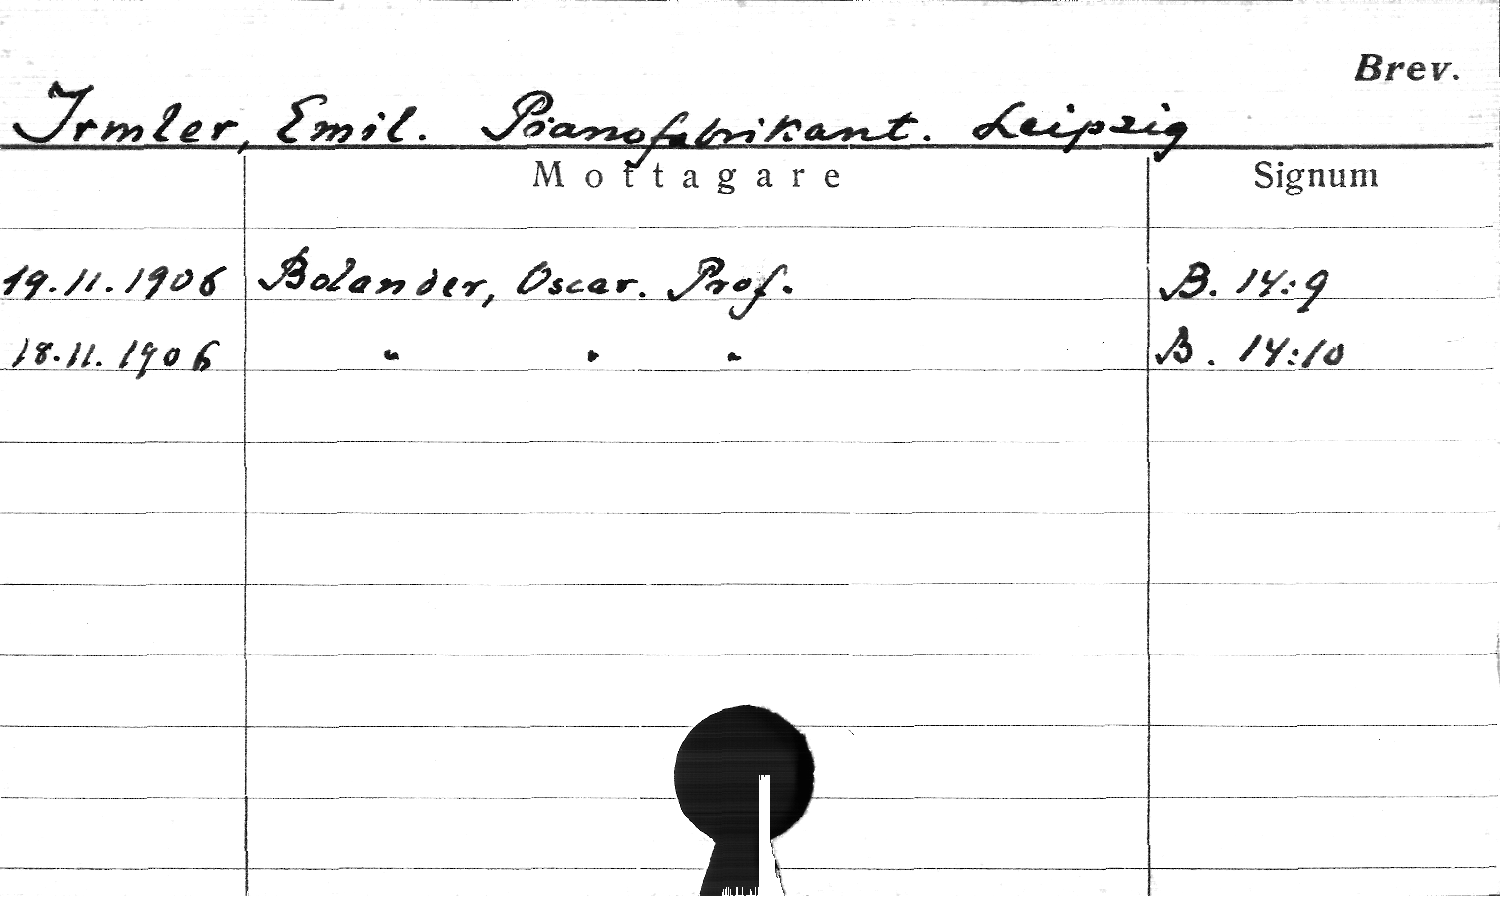 Brev.
Irmler, Emil. Pianofabrikant. Leipzig
Mottagare Signum
19.11.1906 Bolander, Oscar. Prof. B. 14:9
18.11.1906 " " " B. 14:10